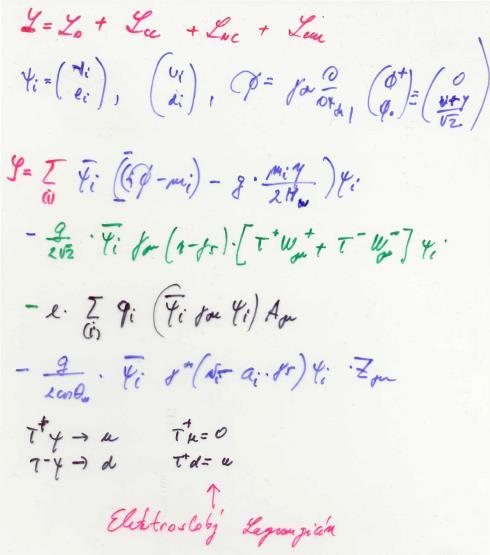 ℒ = ℒ₀ + ℒcc + ℒNC + ℒem
ψi = (νi ei), (ui di), ∂̸ = γμ ∂/∂xμ, (ϕ⁺ ϕ₀) = (0 (v+η)/√2)
ℒ = Σ(i) ψ̄i ((i∂̸ - mi) - g · mi η / 2Mw) ψi
- g/2√2 · ψ̄i γμ (1-γ5) · [T⁺Wμ⁺ + T⁻Wμ⁻] ψi
- e · Σ(i) qi (ψ̄i γμ ψi) Aμ
- g/2cosθw · ψ̄i γμ (vi - ai · γ5) ψi · Zμ
T⁺ψ → u T⁺u = 0
T⁻ψ → d T⁺d = u
↑
Elektroslabý Lagrangián